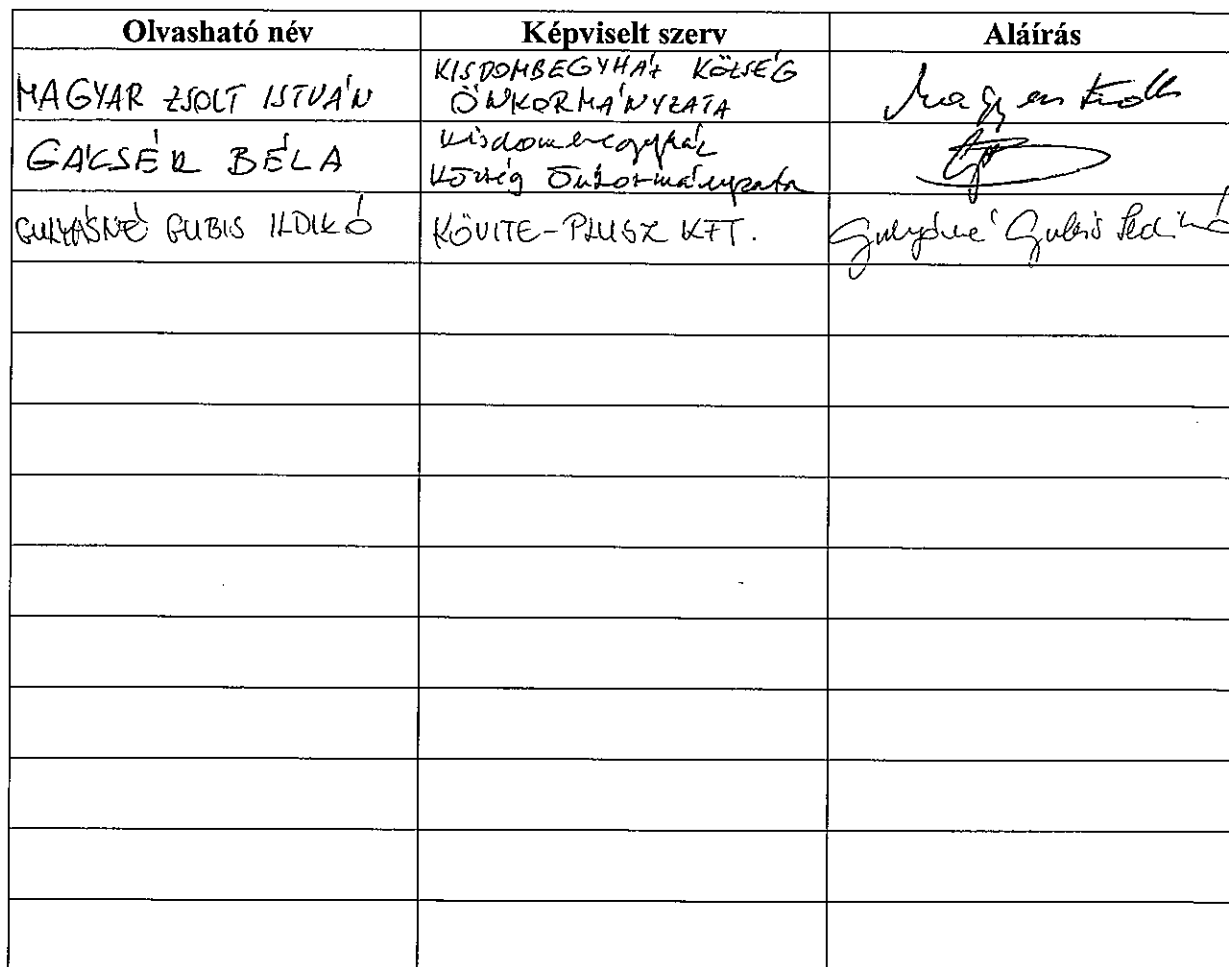 Olvasható név Képviselt szerv Aláírás
MAGYAR ZSOLT ISTVÁN KISDOMBEGYHÁZ KÖZSÉG ÖNKORMÁNYZATA Magyar Zsolt
GÁCSÉR BÉLA Kisdombegyház Község Önkormányzata
GULYÁSNÉ GUBIS ILDIKÓ KÖVITE-PLUSZ KFT. Gulyásné Gubis Ildikó